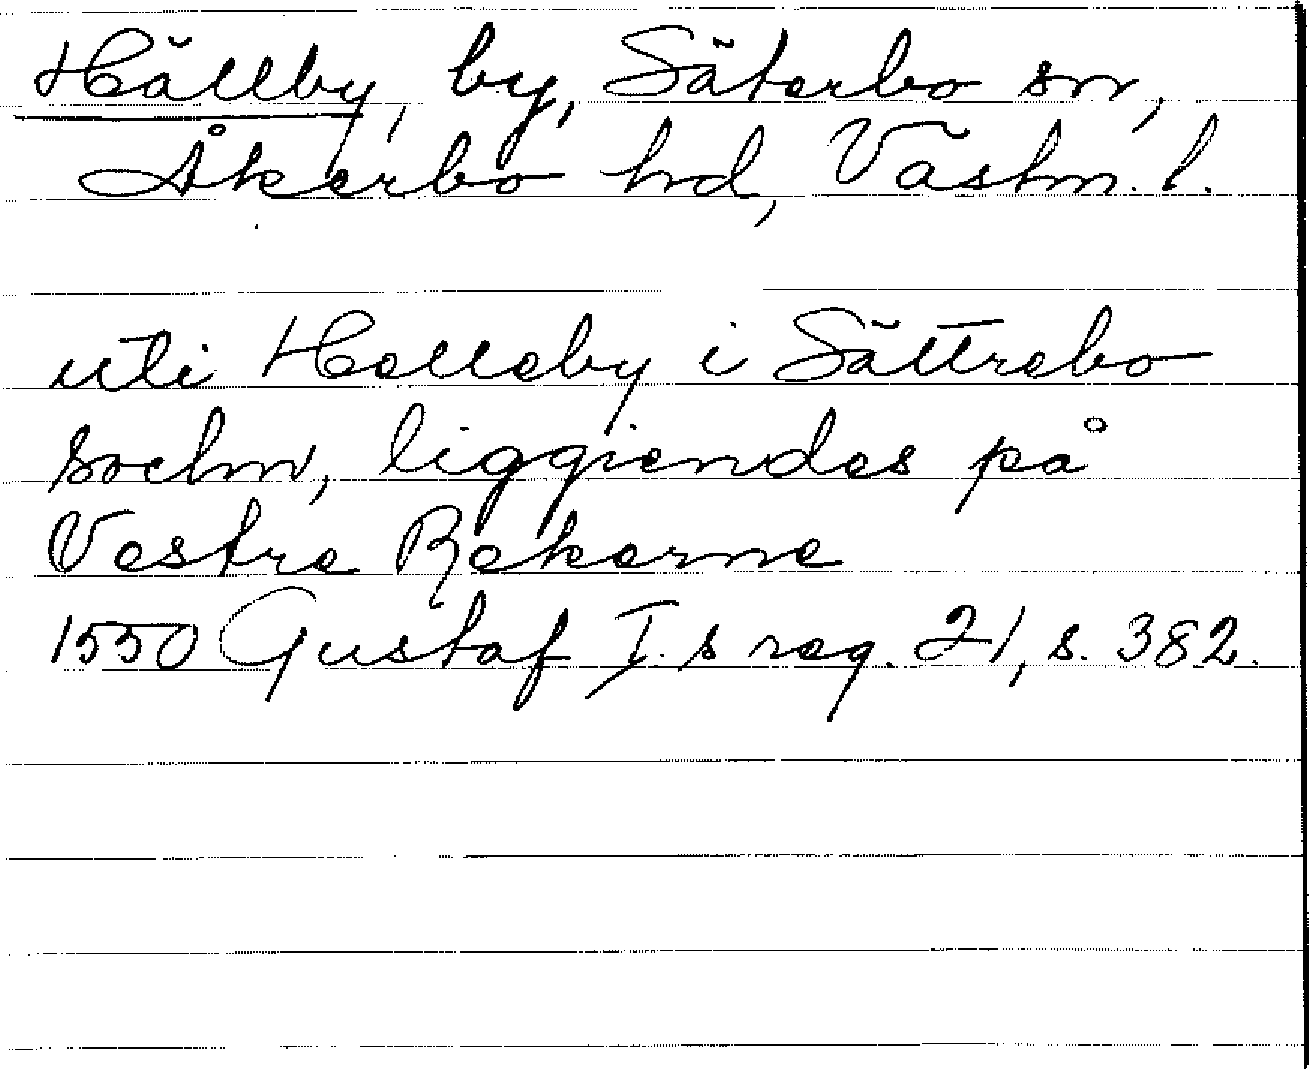 Hällby, by, Säterbo sn,
Åkerbo hd, Västm. l.
uti Helleby i Sättrebo
sochn, liggiendes på
Vestre Rekerne
1550 Gustaf I.s reg. 21, s. 382.